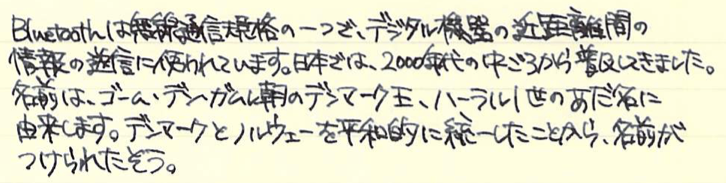 Bluetoothは無線通信規格の一つで、デジタル機器の近距離間の
情報の送信に使われています。日本では、2000年代の中ごろから普及してきました。
名前は、ゴーム・デンガムレ朝のデンマーク王、ハーラル1世のあだ名に
由来します。デンマークとノルウェーを平和的に統一したことから、名前が
つけられたそう。